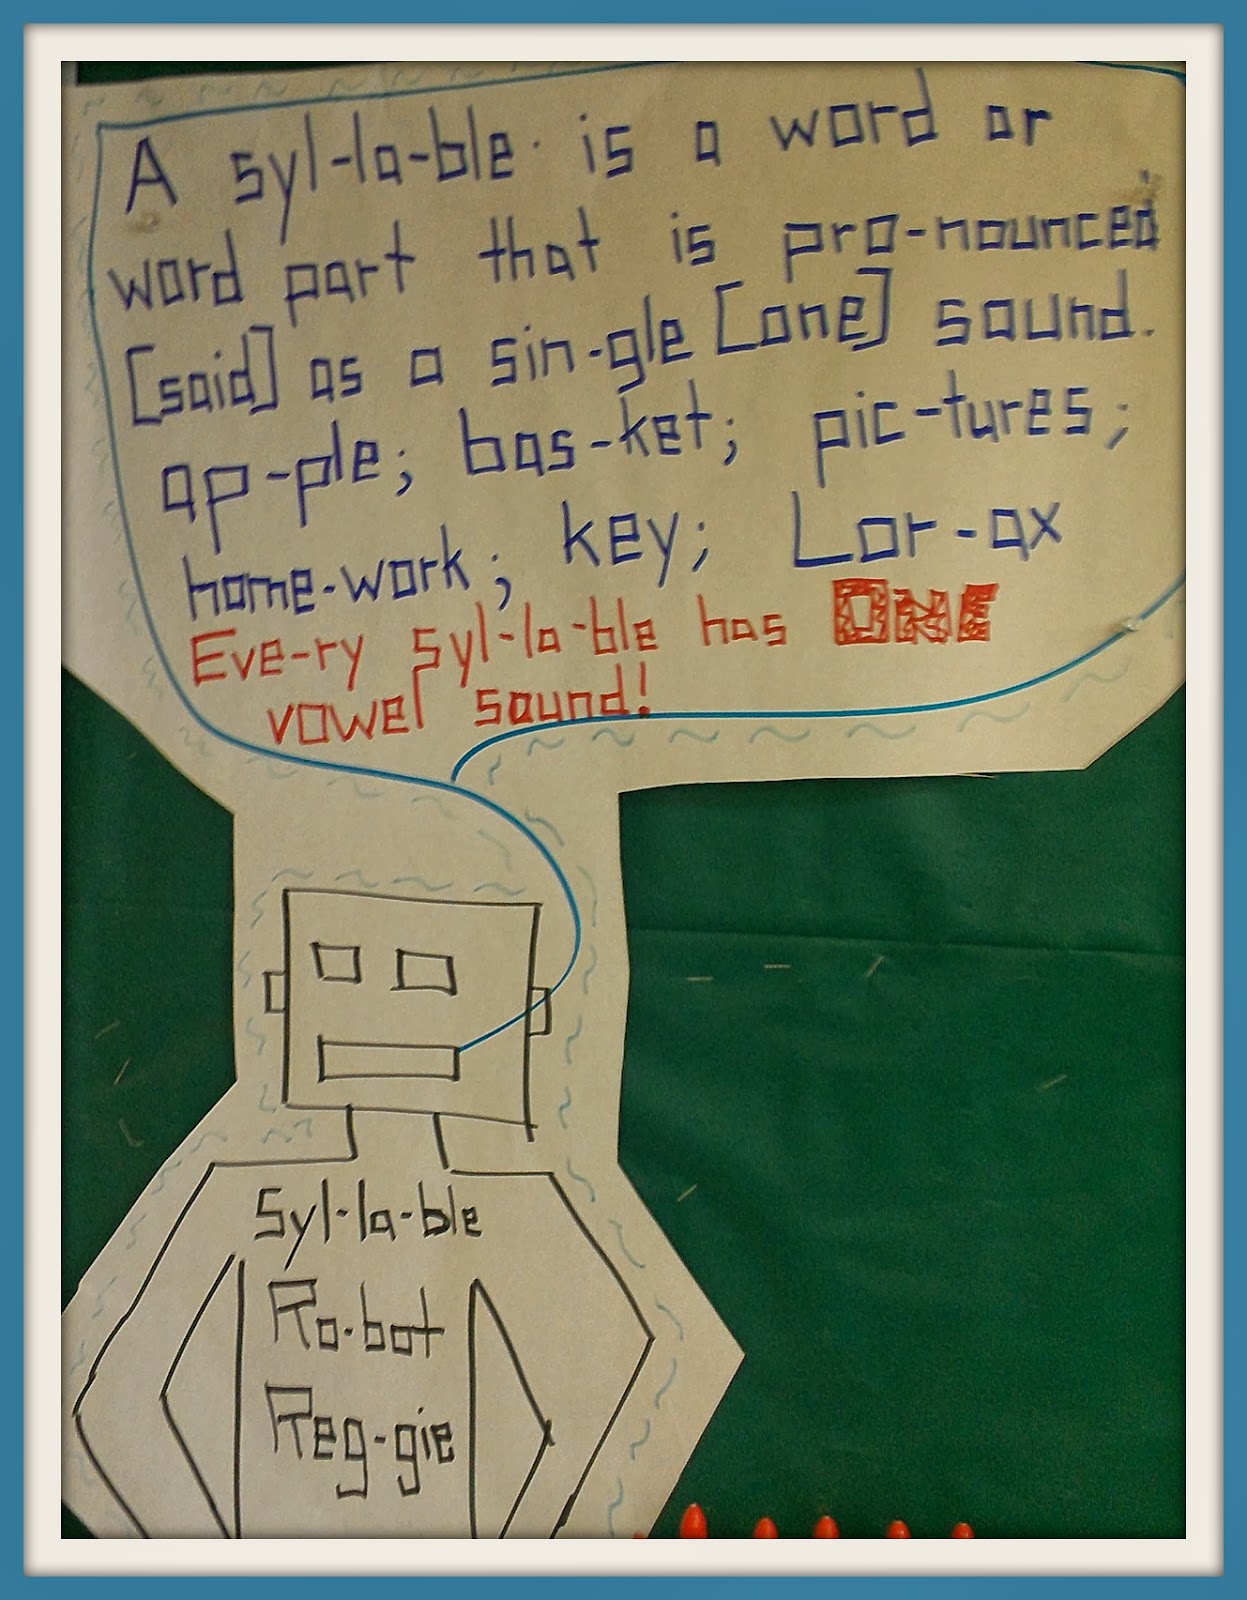 A syl-la-ble is a word or
word part that is pro-nounced
[said] as a sin-gle [one] sound.
ap-ple; bas-ket; pic-tures;
home-work; key; Lor-ax
Eve-ry syl-la-ble has ONE
vowel sound!
Syl-la-ble
Ro-bot
Reg-gie